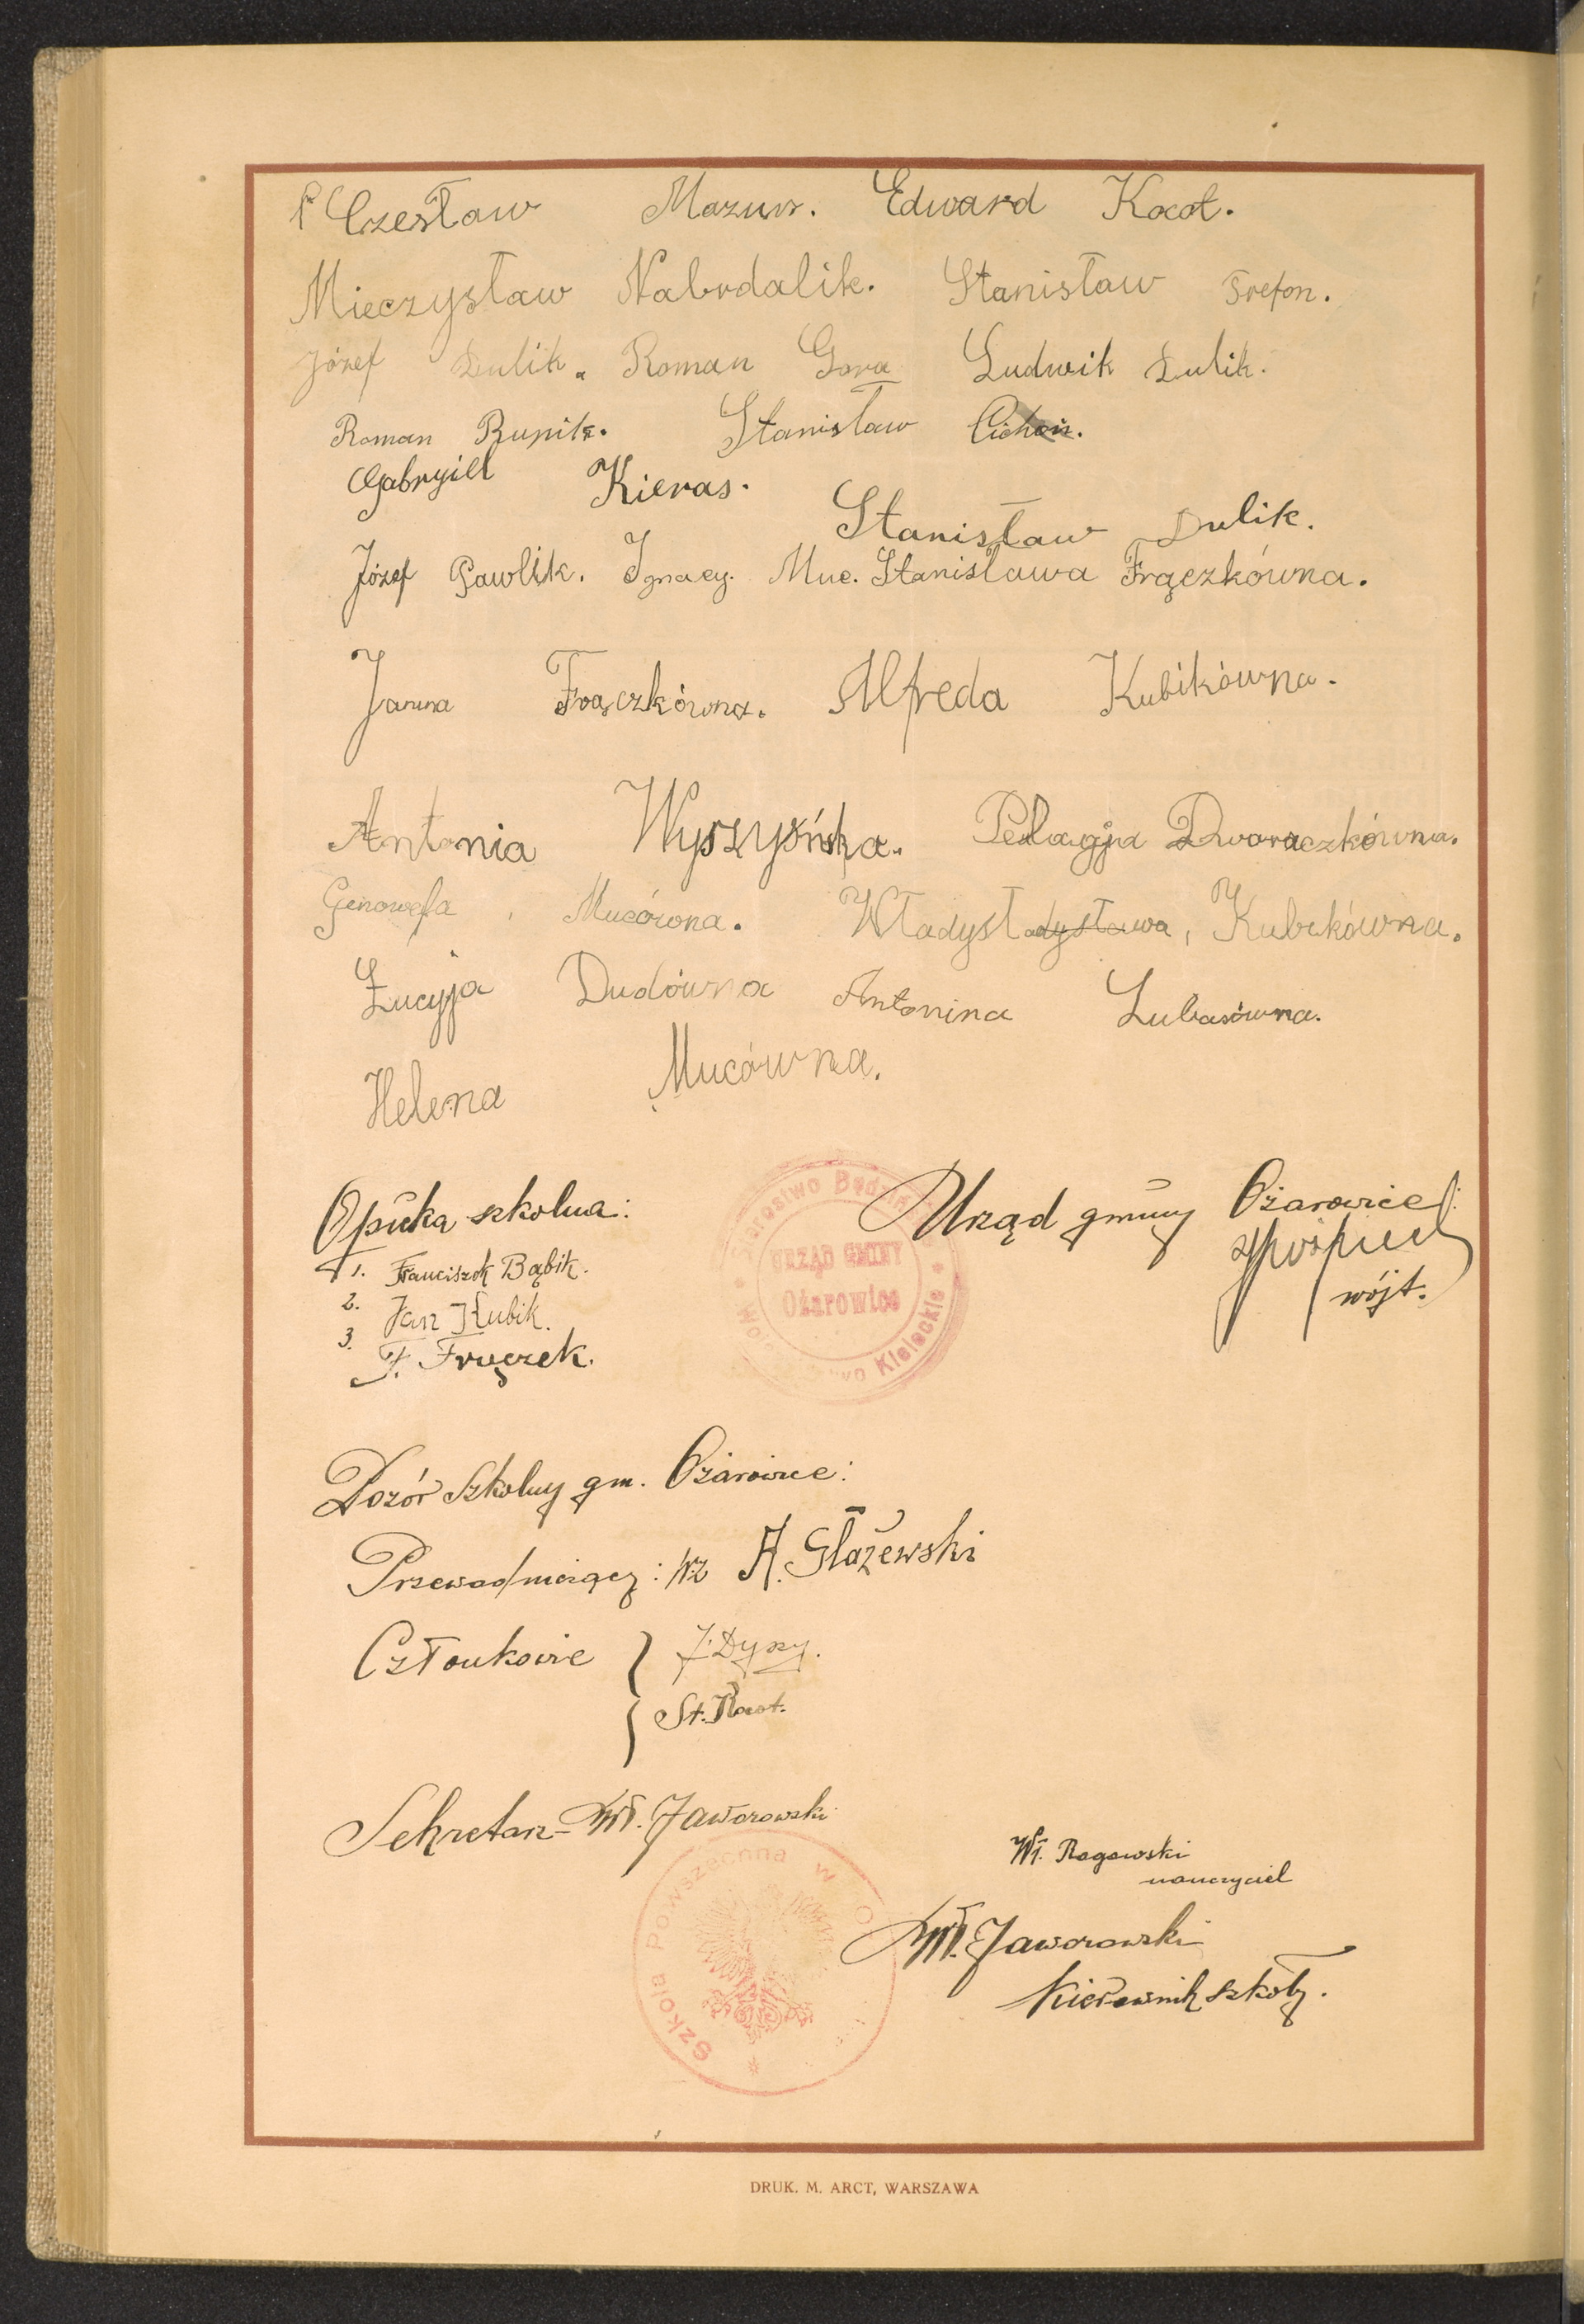 Czesław Mazur. Edward Kocot.
Mieczysław Nabrdalik. Stanisław Trefon.
Józef Dulik. Roman Gora Ludwik Dulik.
Roman Rupik. Stanisław Cichoń.
Gabryiel Kieras.
Stanisław Dulik.
Józef Pawlik. Ignacy. Muc. Stanisława Frączkówna.
Janina Frączkówna. Alfreda Kubikówna.
Antonia Wyszyńska. Pelagja Dworaczkówna.
Genowefa Mucówna. Kubikówna.
Łucyja Dudówna Antonina Lubasówna.
Helena Mucówna.
Opieka szkolna:
1. Franciszek Bąbik.
2. Jan Kubik.
3. F. Frączek.
Urząd gminy Ożarowice:
wójt.
Starostwo Będzin
URZĄD GMINY
Ożarowice
Kieleckie
Dozór Szkolny gm. Ożarowice:
Przewodniczący: wz A. Głażewski
Członkowie J. Dyszy.
St. Kocot.
Sekretarz - Wł. Jaworowski
Szkoła Powszechna w
Wł. Rogowski
nauczyciel
Wł. Jaworowski
Kierownik szkoły.
DRUK. M. ARCT, WARSZAWA